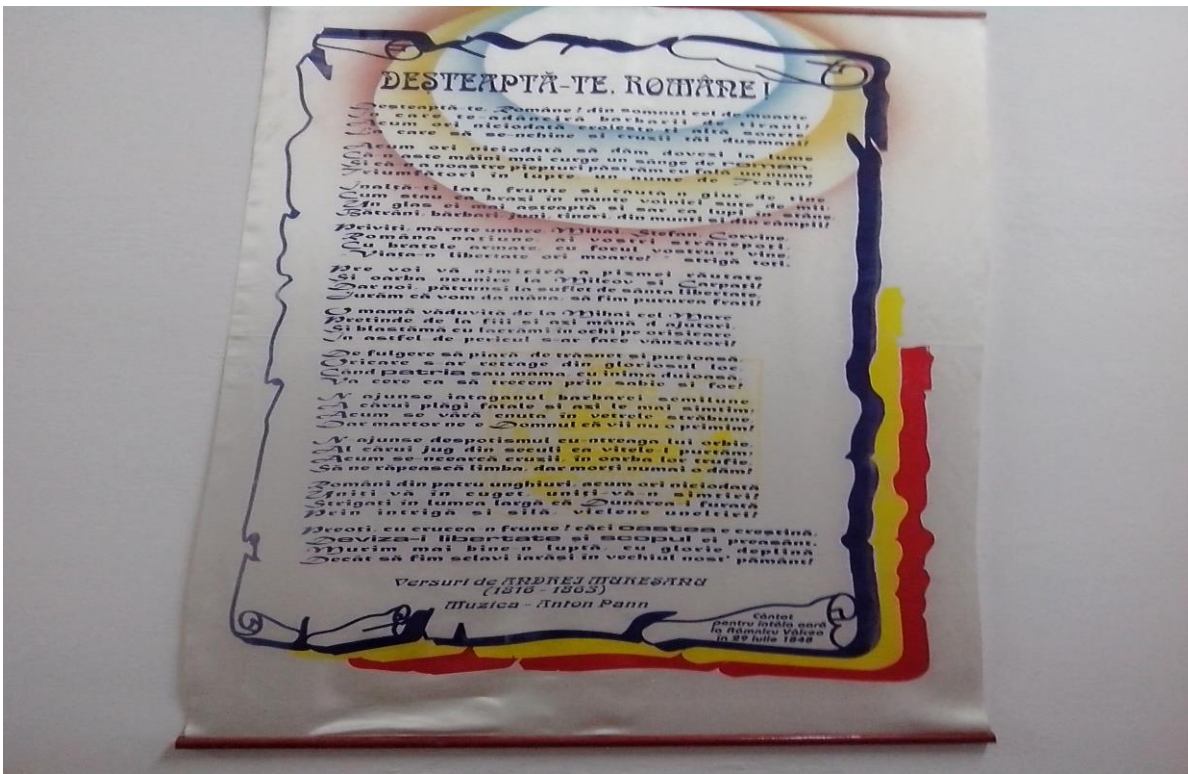 DESTEAPTĂ-TE, ROMÂNE!
Desteaptă-te, Române! din somnul cel de moarte
În care te-adânciră barbarii de tirani!
Acum ori niciodată croieste-ti altă soarte
La care să se-nchine si cruzii tăi dusmani!
Acum ori niciodată să dăm dovezi la lume
Că-n aste mâini mai curge un sânge de roman
Si că-n a noastre piepturi păstrăm cu fală-un nume
Triumfători în lupte, un nume de Traian!
Înaltă-ti lata frunte si caută-n giur de tine
Cum stau ca brazi în munte voinici sute de mii;
Un glas ei mai asteaptă si sar ca lupi în stâne
Bătrâni, bărbati, juni, tineri, din munti si din câmpii!
Priviti, mărete umbre, Mihai, Stefan, Corvine,
Româna natiune, ai vostri strănepoti,
Cu bratele armate, cu focul vostru-n vine,
Viata-n libertate ori moarte! - strigă toti.
Pre voi vă nimiciră a pizmei răutate
Si oarba neunire la Milcov si Carpati!
Dar noi, pătrunsi la suflet de sânta libertate,
Jurăm că vom da mâna, să fim pururea frati!
O mamă văduvită de la Mihai cel Mare
Pretinde de la fiii si azi mână d-ajutori,
Si blastămă cu lacrămi în ochi pe orisicare
În astfel de pericul s-ar face vânzători!
De fulgere să piară, de trăsnet si pucioasă,
Oricare s-ar retrage din gloriosul loc,
Când patria sau mama, cu inima duioasă,
Va cere ca să trecem prin sabie si foc!
N-ajunse iataganul barbarei semilune
A cărui plăgi fatale si azi le mai simtim;
Acum se vâră cnuta în vetrele străbune,
Dar martor ne-i Domnul că vii nu-o primim!
N-ajunse despotismul cu-ntreaga lui orbie,
Al cărui jug din seculi ca vitele-l purtăm;
Acum se-ncearcă cruzii, în oarba lor trufie,
Să ne răpească limba, dar morti numai o dăm!
Români din patru unghiuri, acum ori niciodată
Uniti-vă în cuget, uniti-vă-n simtiri!
Strigati în lumea largă că Dunărea-i furată
Prin intrigă si silă, viclene uneltiri!
Preoti, cu crucea-n frunte! căci oastea e crestină,
Deviza-i libertate si scopul ei preasânt,
Murim mai bine-n luptă, cu glorie deplină
Decât să fim sclavi iarăsi în vechiul nost' pământ!
Versuri de ANDREI MURESANU
(1816 - 1863)
Muzica - Anton Pann
Cântat
pentru întâia oară
la Râmnicu Vâlcea
în 29 iulie 1848